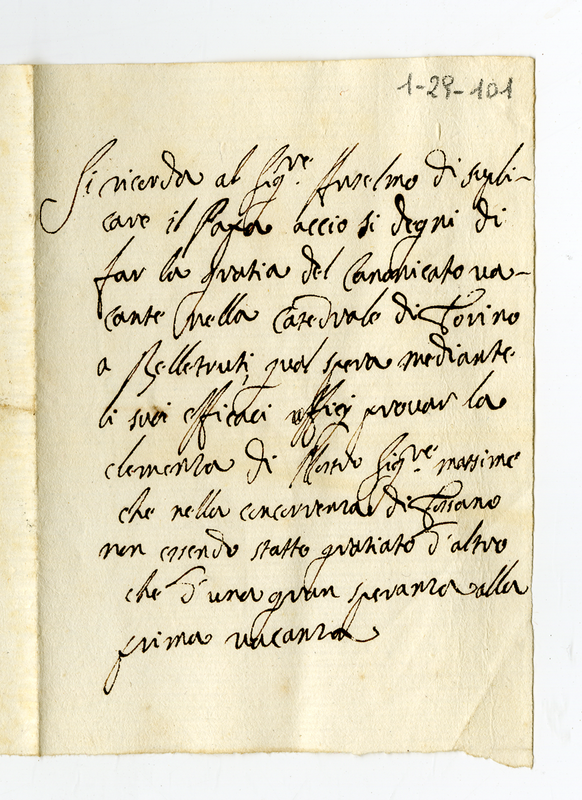 1-29-101
Si ricorda al Sig.re Anselmo di supli-
care il Papa acciò si degni di
far la gratia del Canonicato va-
cante nella Catedrale di Torino
a Belletruti, qual spera mediante
li suoi efficaci officij provar la
clemenza di Nostro Sig.re massime
che nella concorrenza di Fossano
non essendo statto gratiato d'altro
che d'una gran speranza alla
prima vacanza